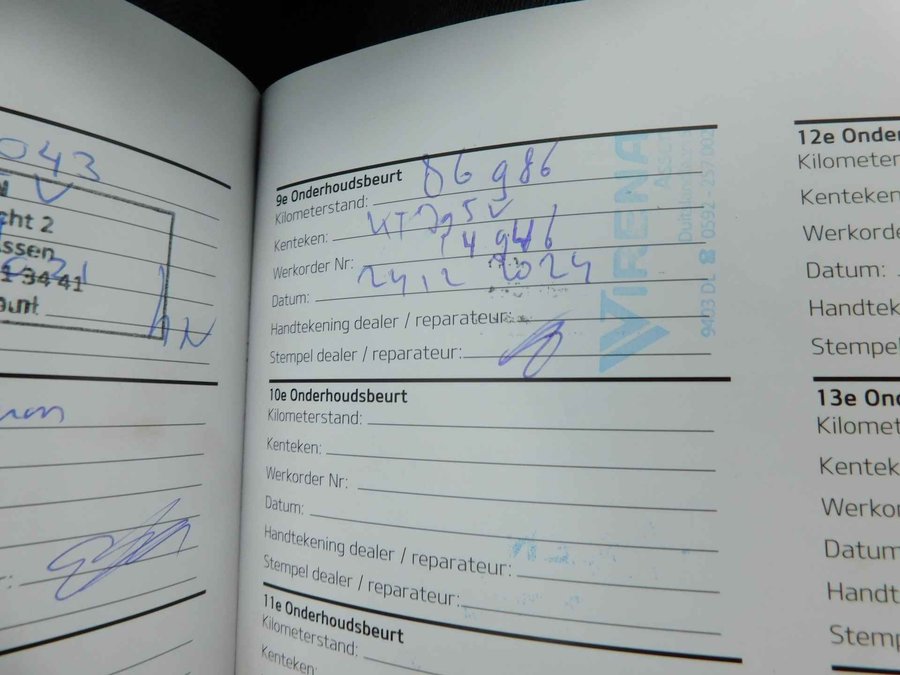 043
cht 2
ssen
1 34 41
ount
AN
9e Onderhoudsbeurt
Kilometerstand: 86 986
Kenteken:
Werkorder Nr: 14 946
Datum: 24,2 2024
Handtekening dealer / reparateur:
Stempel dealer / reparateur:
VIRENA
Assen
9403 DL 0592-257 000
10e Onderhoudsbeurt
Kilometerstand:
Kenteken:
Werkorder Nr:
Datum:
Handtekening dealer / reparateur:
Stempel dealer / reparateur:
11e Onderhoudsbeurt
Kilometerstand:
Kenteken:
12e Onder
Kilometer
Kenteken
Werkorde
Datum:
Handtek
Stempel
13e Ond
Kilomet
Kentek
Werko
Datum
Handt
Stemp